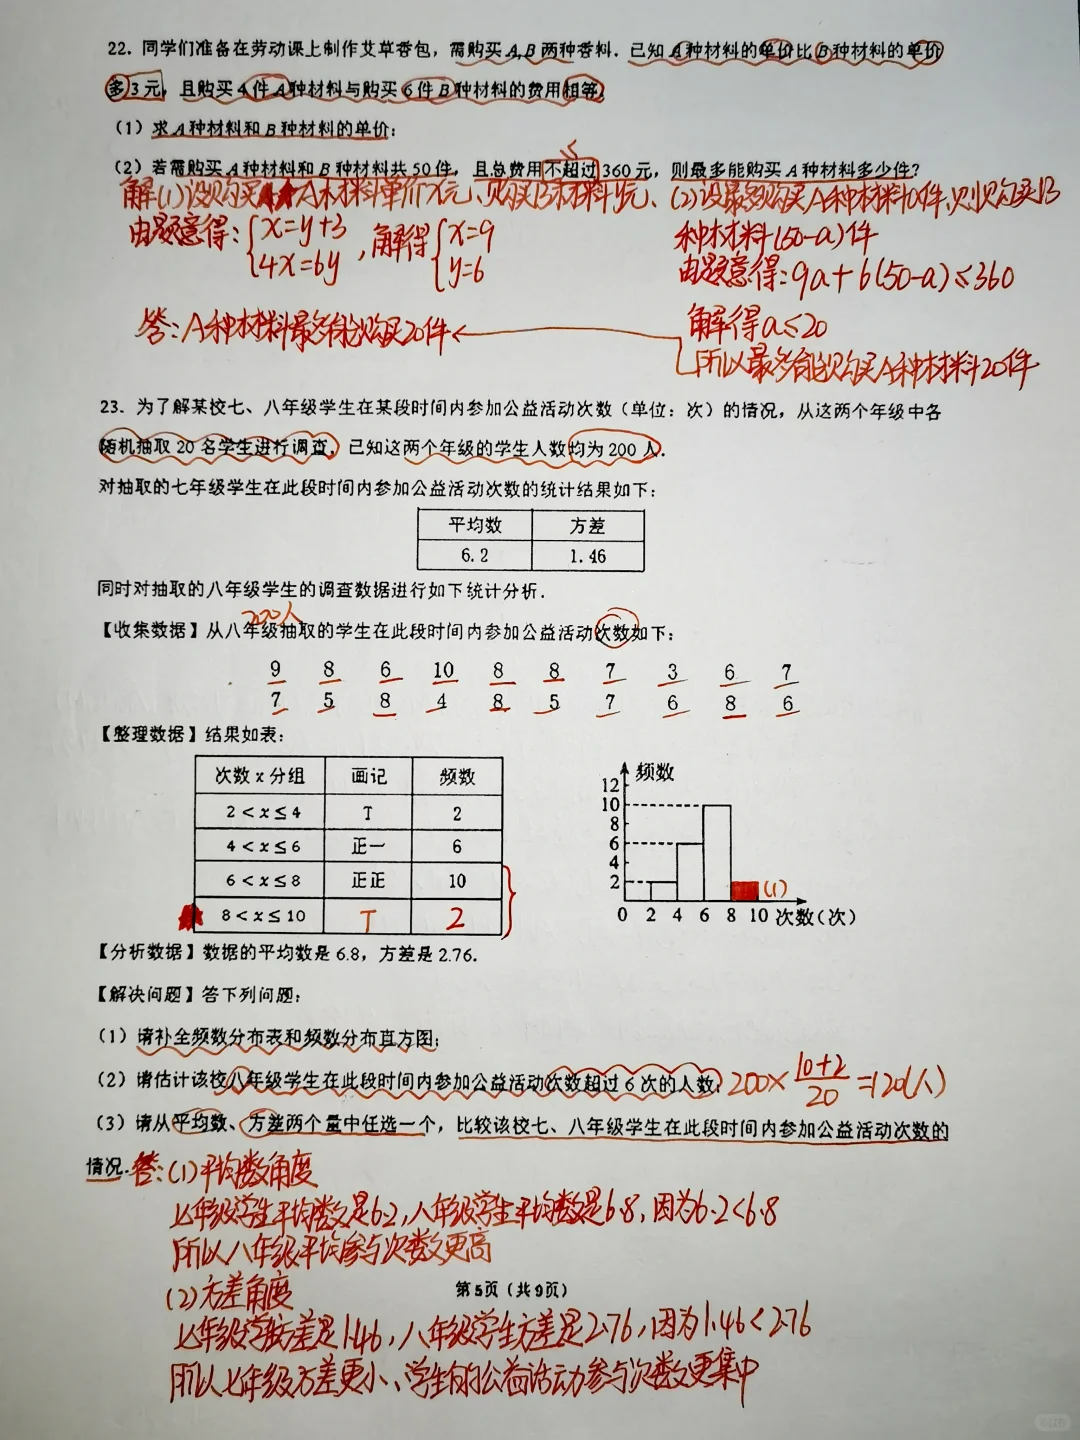 22. 同学们准备在劳动课上制作艾草香包，需购买A,B两种香料．已知A种材料的单价比B种材料的单价
多3元，且购买4件A种材料与购买6件B种材料的费用相等．
（1）求A种材料和B种材料的单价；
（2）若需购买A种材料和B种材料共50件，且总费用不超过360元，则最多能购买A种材料多少件？
≤
解(1)设购买A种材料单价x元、购买B种材料y元、
由题意得：{x=y+3 4x=6y，解得{x=9 y=6
(2)设最多购买A种材料a件，则购买B
种材料(50-a)件
由题意得：9a+6(50-a)≤360
解得a≤20
所以最多能购买A种材料20件
答：A种材料最多能购买20件
23. 为了解某校七、八年级学生在某段时间内参加公益活动次数（单位：次）的情况，从这两个年级中各
随机抽取20名学生进行调查，已知这两个年级的学生人数均为200人．
对抽取的七年级学生在此段时间内参加公益活动次数的统计结果如下：
平均数 方差
6.2 1.46
同时对抽取的八年级学生的调查数据进行如下统计分析．
200人
【收集数据】从八年级抽取的学生在此段时间内参加公益活动次数如下：
9 8 6 10 8 8 7 3 6 7
7 5 8 4 8 5 7 6 8 6
【整理数据】结果如表：
次数x分组 画记 频数
2＜x≤4 T 2
4＜x≤6 正一 6
6＜x≤8 正正 10
8＜x≤10 T 2
频数
12
10
8
6
4
2
(1)
0 2 4 6 8 10 次数（次）
【分析数据】数据的平均数是6.8，方差是2.76．
【解决问题】答下列问题：
（1）请补全频数分布表和频数分布直方图；
（2）请估计该校八年级学生在此段时间内参加公益活动次数超过6次的人数；200×(10+2)/20=120(人)
（3）请从平均数、方差两个量中任选一个，比较该校七、八年级学生在此段时间内参加公益活动次数的
情况．答：(1)平均数角度
七年级学生平均数是6.2，八年级学生平均数是6.8，因为6.2<6.8
所以八年级平均参与次数更高
(2)方差角度
第5页（共9页）
七年级学生方差是1.46，八年级学生方差是2.76，因为1.46<2.76
所以七年级方差更小、学生们的公益活动参与次数更集中